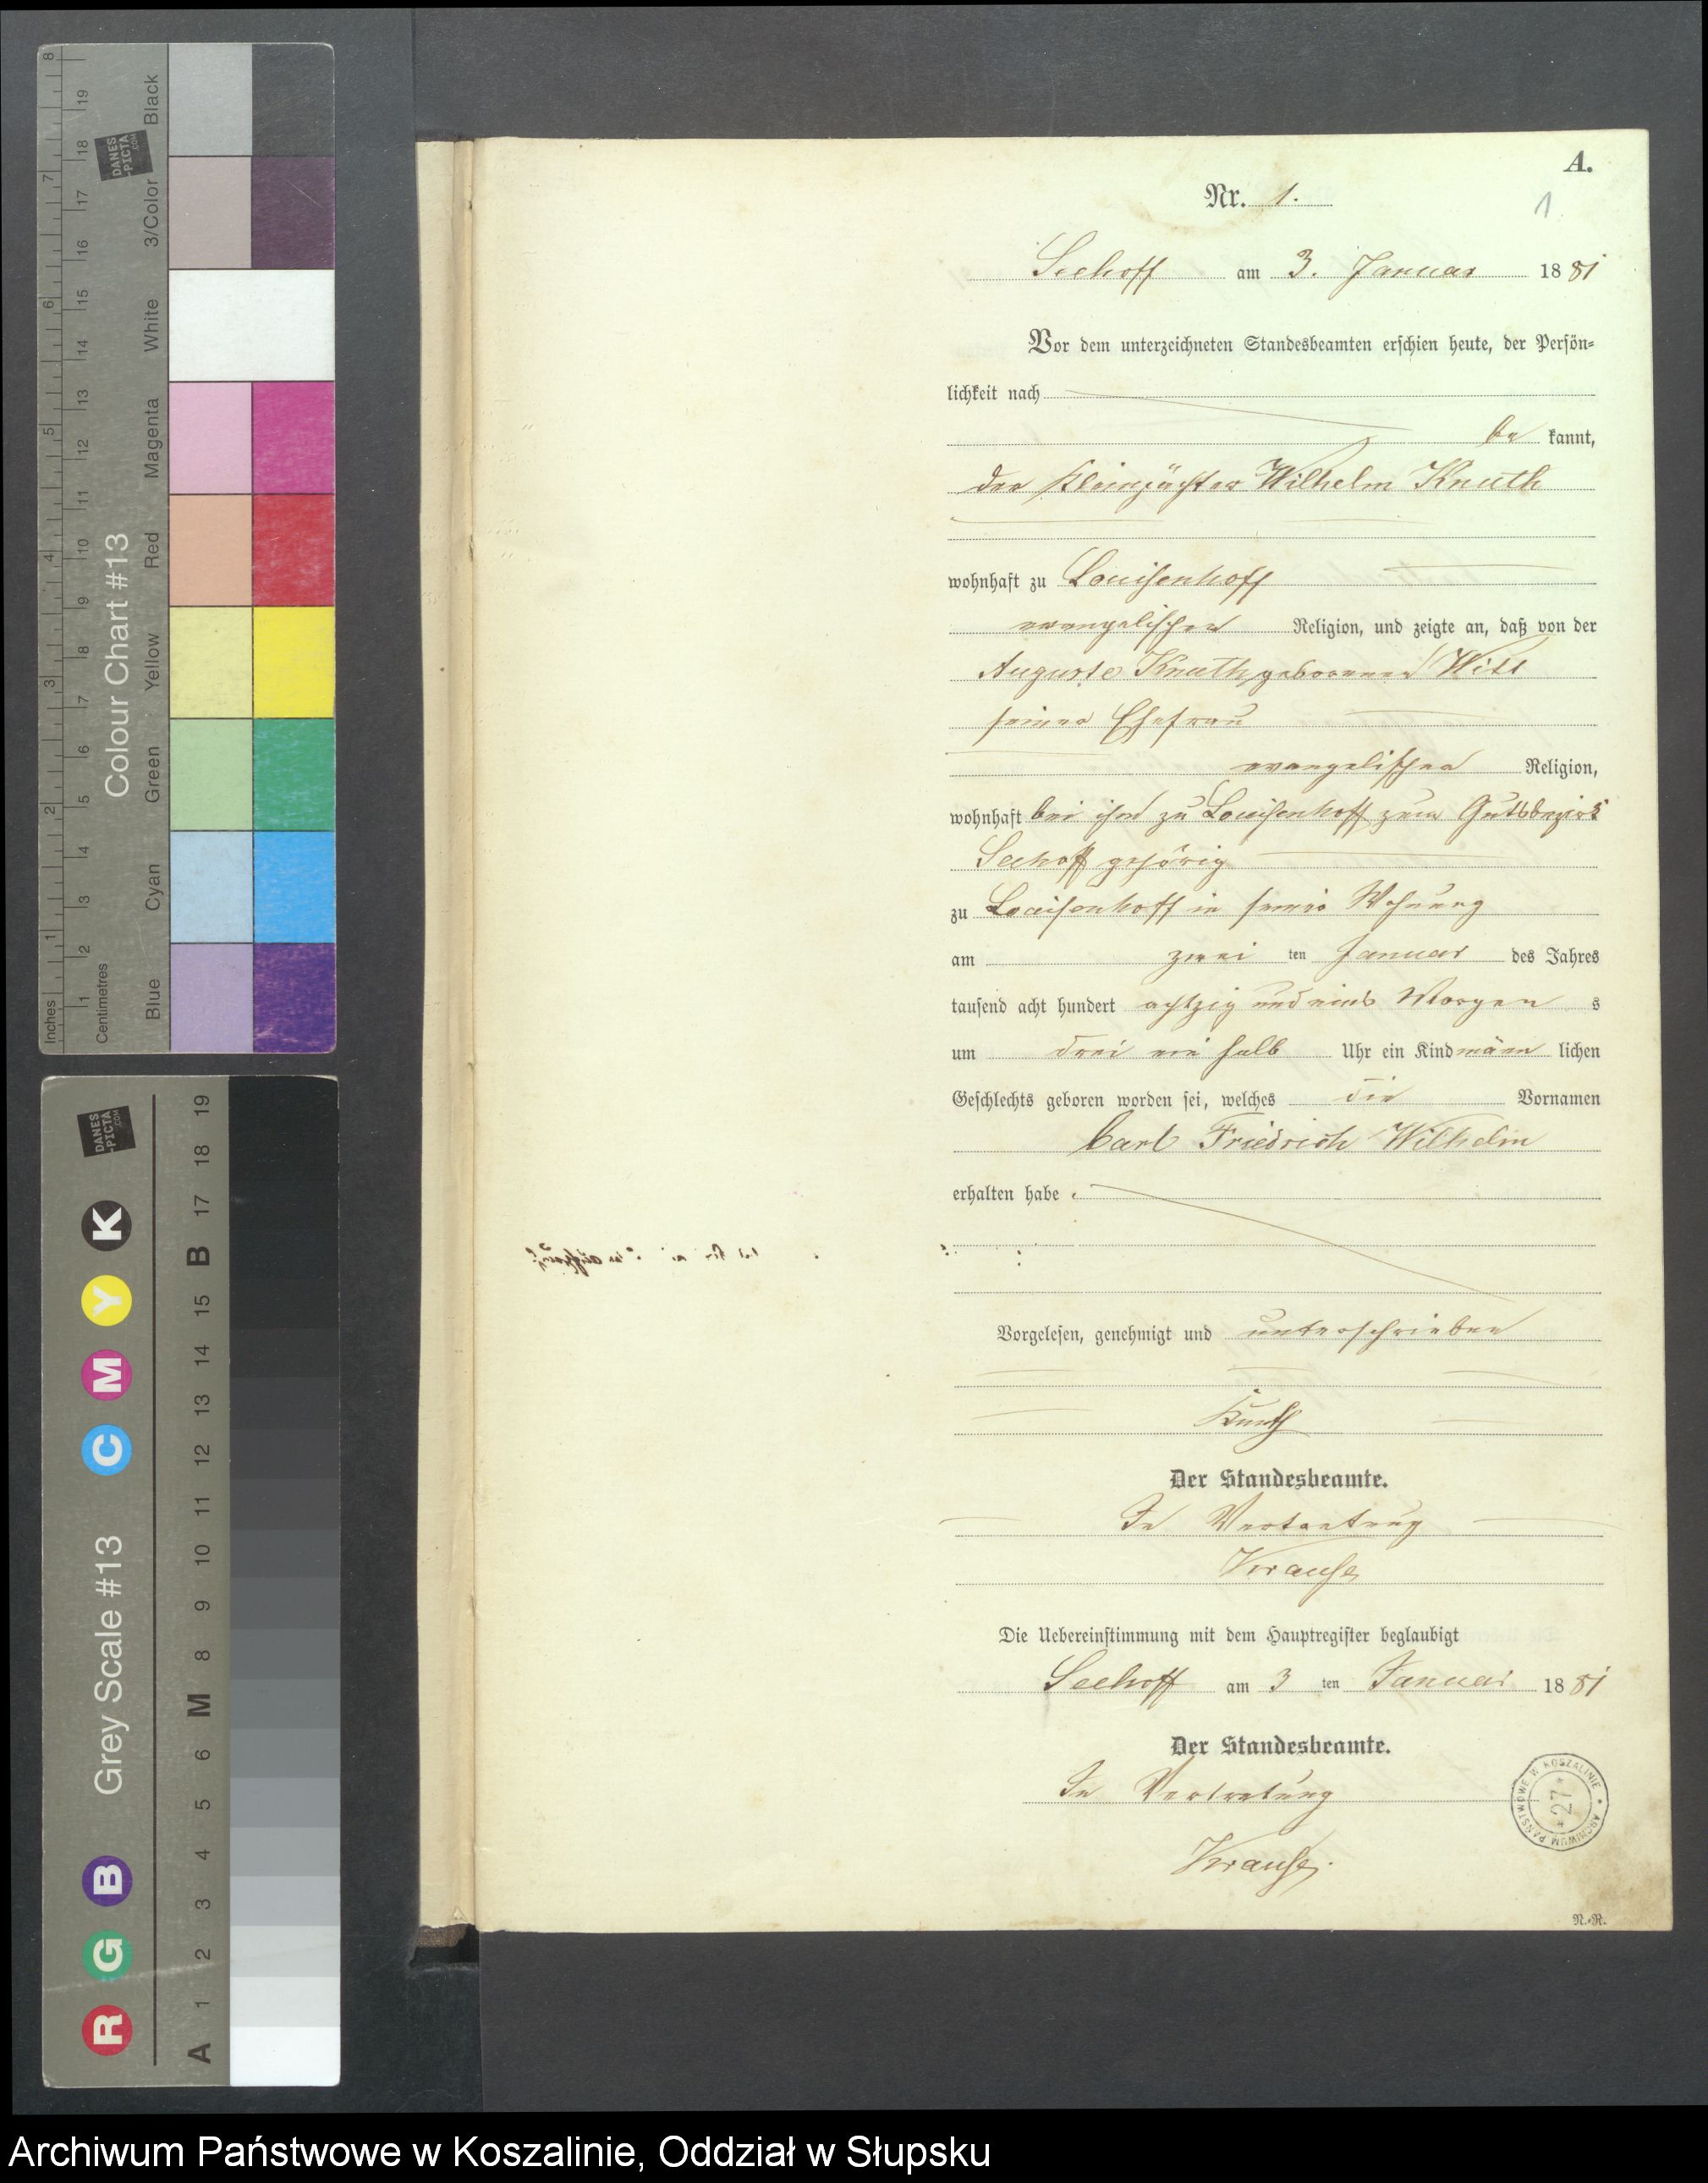 A.
Nr. 1.
1
Seehoff am 3. Januar 1881
Vor dem unterzeichneten Standesbeamten erschien heute, der Persön=
lichkeit nach
be kannt,
der Kleinpächter Wilhelm Knuth
wohnhaft zu Louisenhoff
evangelischer Religion, und zeigte an, daß von der
Auguste Knuth, geborenen Witt
seiner Ehefrau
evangelischer Religion,
wohnhaft bei ihm zu Louisenhoff zum Gutsbezirk
Seehoff gehörig
zu Louisenhoff in seiner Wohnung
am zwei ten Januar des Jahres
tausend acht hundert achtzig und eins Morgen s
um drei ein halb Uhr ein Kind männ lichen
Geschlechts geboren worden sei, welches die Vornamen
Carl Friedrich Wilhelm
erhalten habe.
Vorgelesen, genehmigt und unterschrieben
Knuth
Der Standesbeamte.
In Vertretung
Krause
Die Uebereinstimmung mit dem Hauptregister beglaubigt
Seehoff am 3 ten Januar 1881
Der Standesbeamte.
In Vertretung
Krause.
ARCHIWUM PAŃSTWOWE W KOSZALINIE
* 27 *
N.-R.
Inches 1 2 3 4 5 6 7 8
Centimetres 1 2 3 4 5 6 7 8 9 10 11 12 13 14 15 16 17 18 19
Colour Chart #13
Blue Cyan Green Yellow Red Magenta White 3/Color Black
DANES
-PICTA
.COM
R G B Grey Scale #13 C M Y K
A 1 2 3 4 5 6 M 8 9 10 11 12 13 14 15 B 17 18 19
DANES
-PICTA
.COM
Archiwum Państwowe w Koszalinie, Oddział w Słupsku